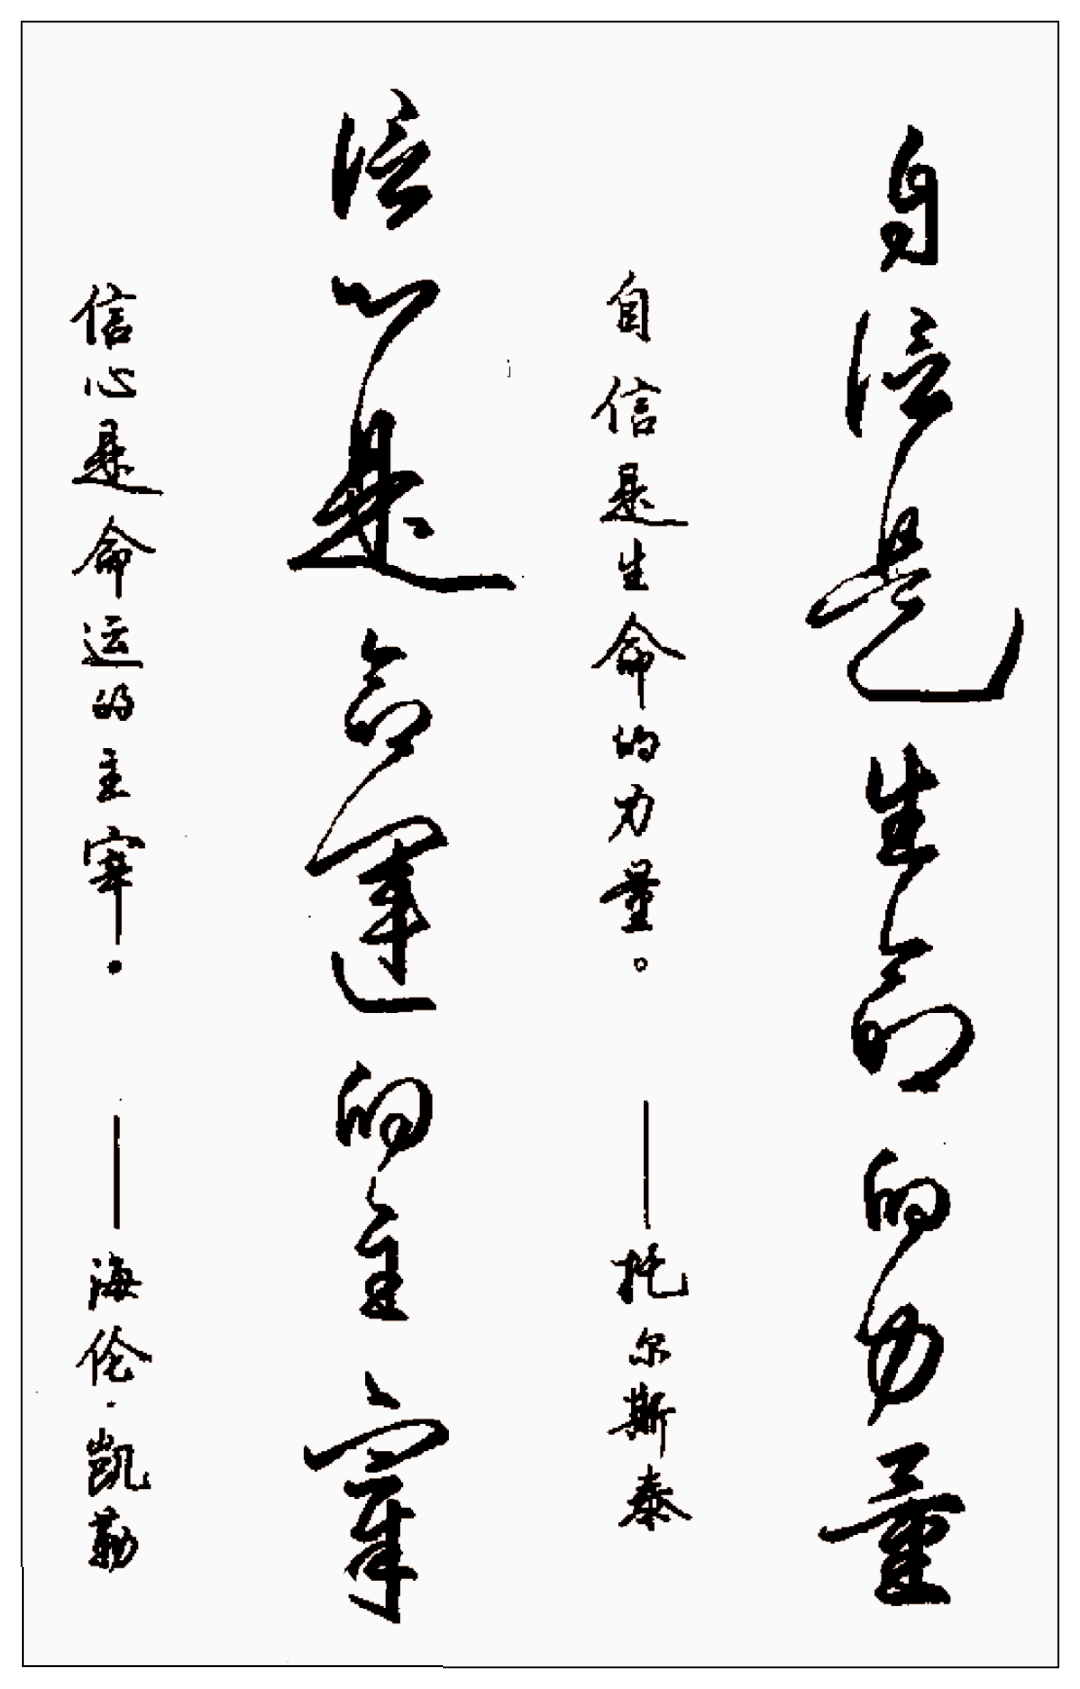 自信是生命的力量
自信是生命的力量。 ——托尔斯泰
信心是命運的主宰
信心是命运的主宰。 ——海伦·凯勒